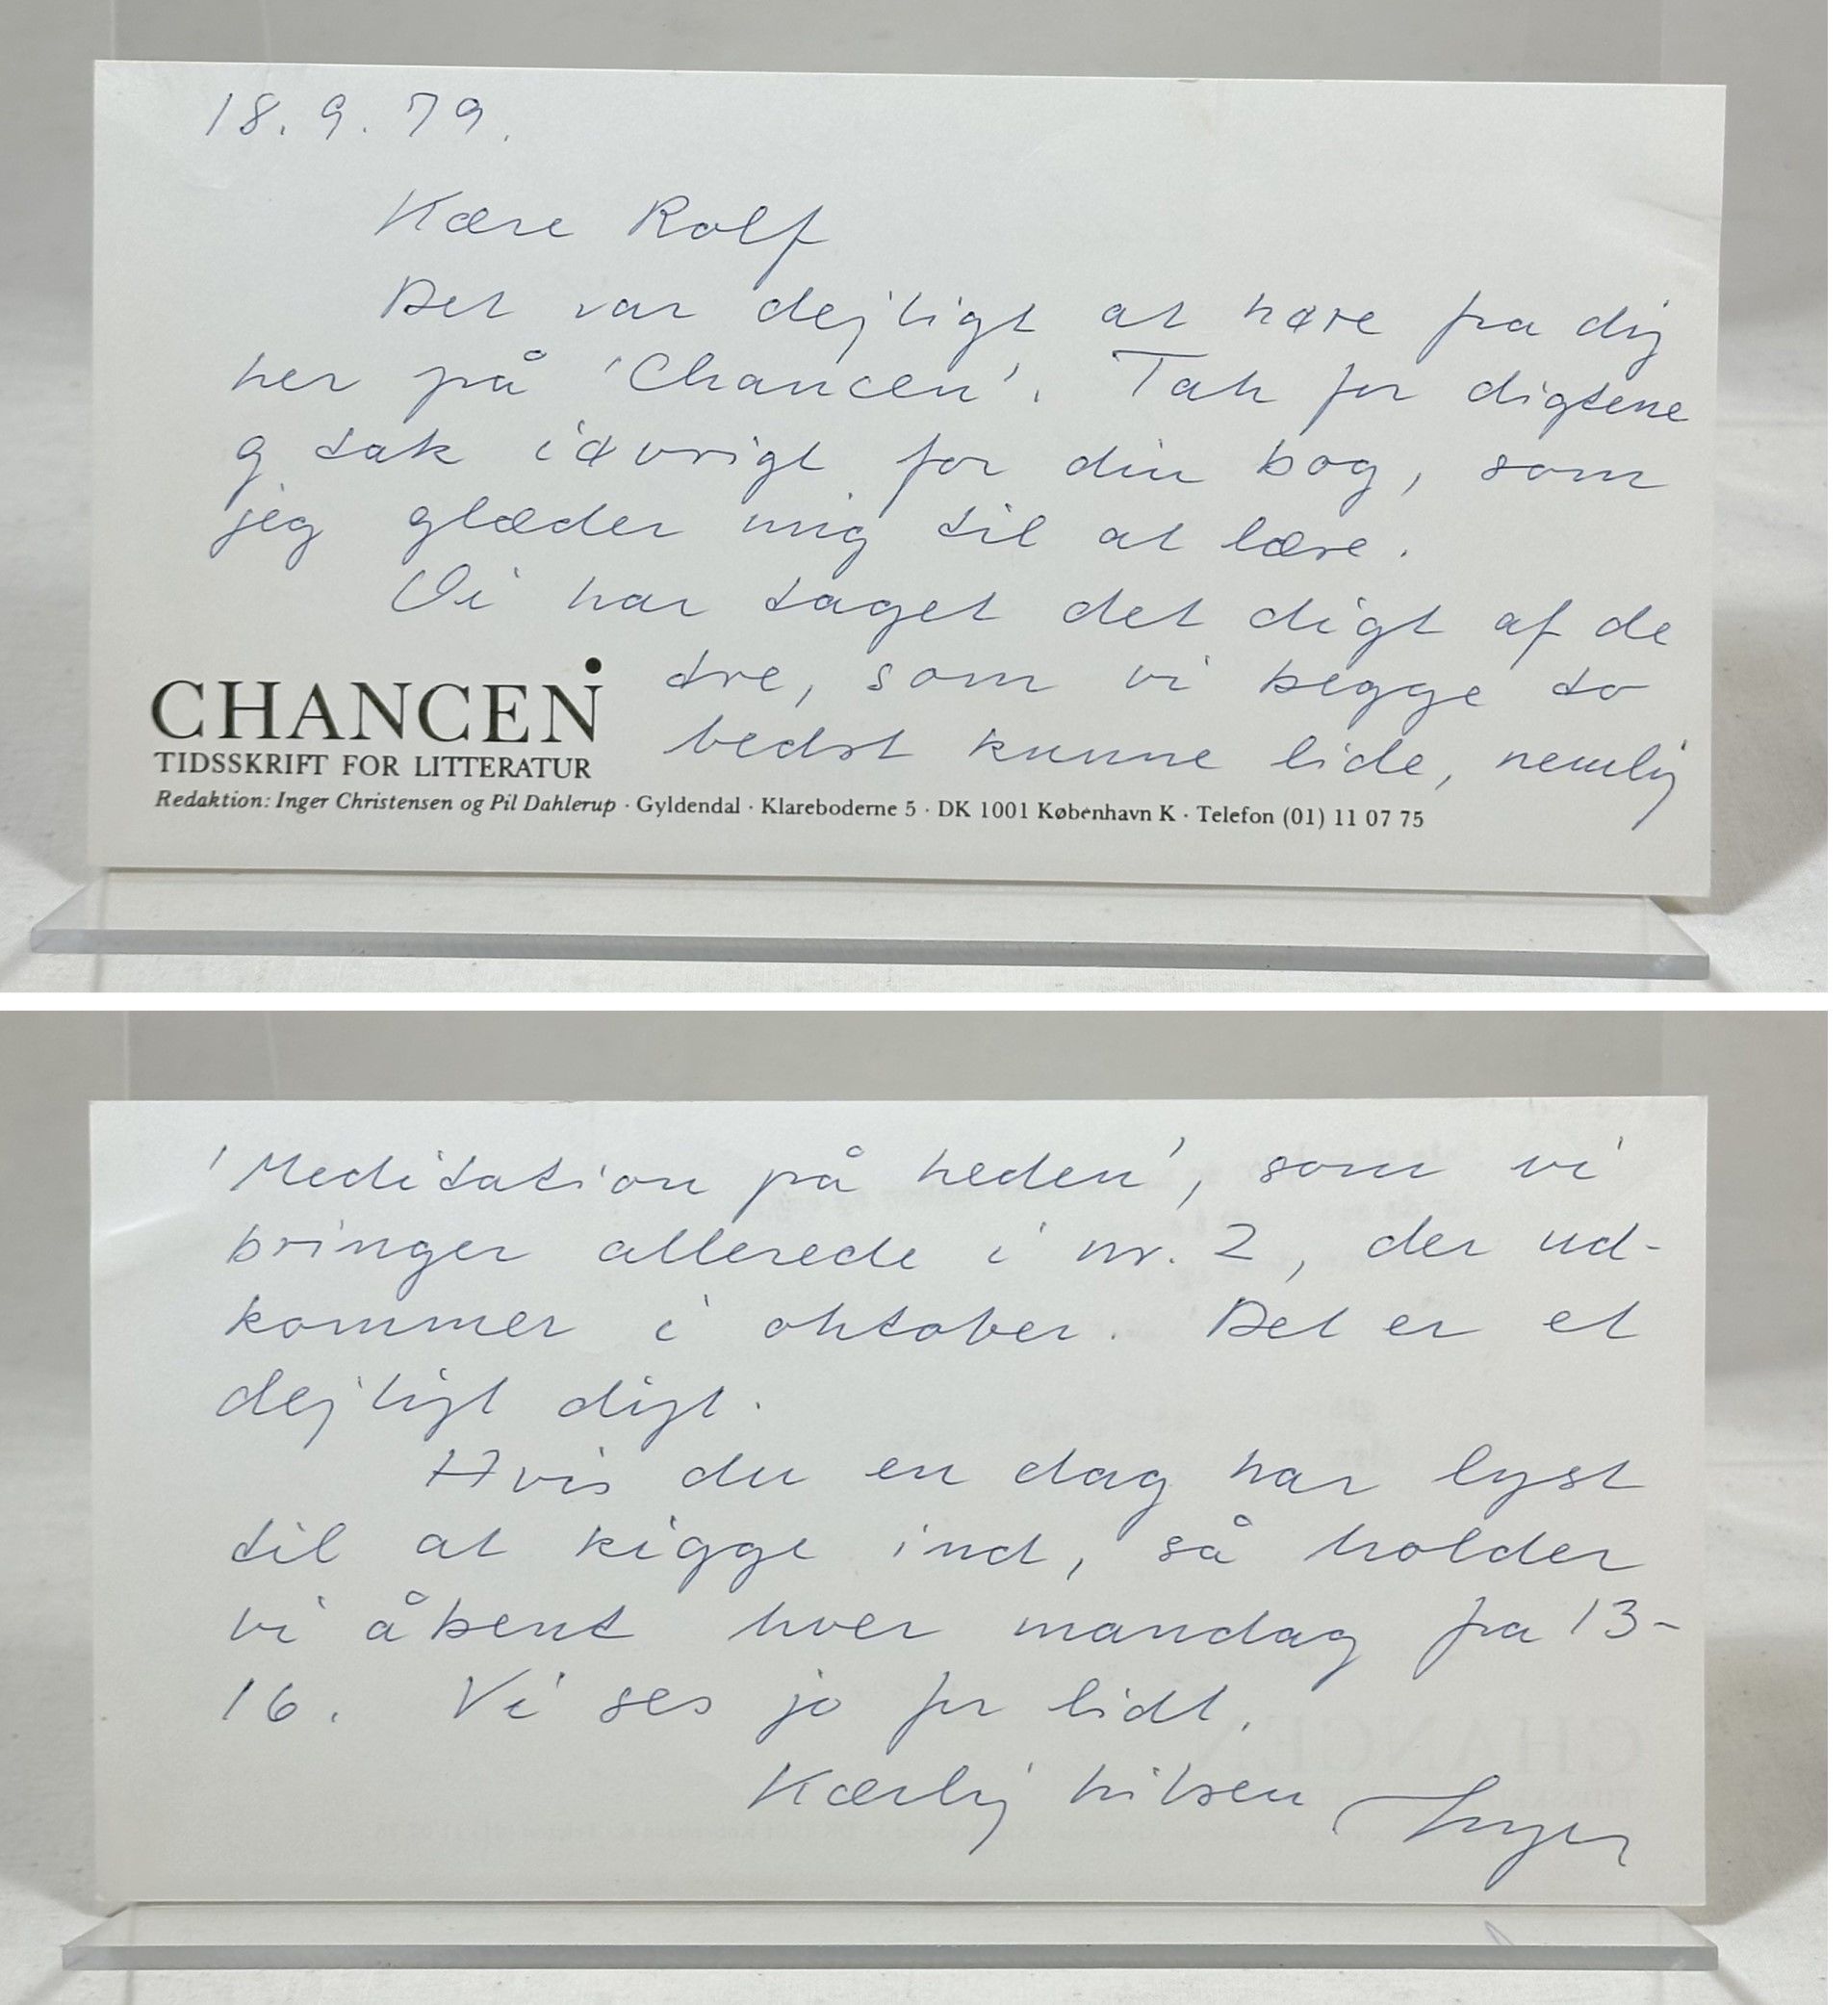 18.9.79.
Kære Rolf
Det var dejligt at høre fra dig
her på 'Chancen'. Tak for digtene
og tak iøvrigt for din bog, som
jeg glæder mig til at læse.
Vi har taget det digt af de
tre, som vi begge to
bedst kunne lide, nemlig
CHANCEN
TIDSSKRIFT FOR LITTERATUR
Redaktion: Inger Christensen og Pil Dahlerup · Gyldendal · Klareboderne 5 · DK 1001 København K · Telefon (01) 11 07 75
'Meditation på heden', som vi
bringer allerede i nr. 2, der ud-
kommer i oktober. Det er et
dejligt digt.
Hvis du en dag har lyst
til at kigge ind, så holder
vi åbent hver mandag fra 13-
16. Vi ses jo for lidt.
Kærlig hilsen Inger